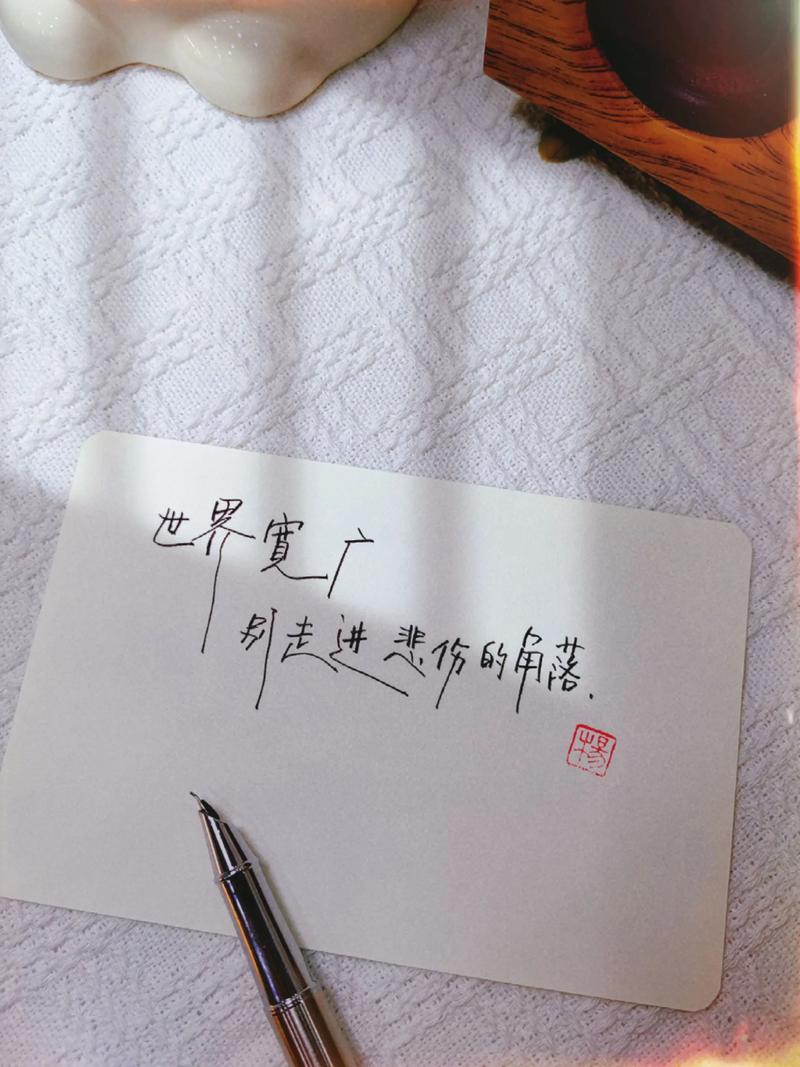 世界寛广
别走进悲伤的角落.
楊